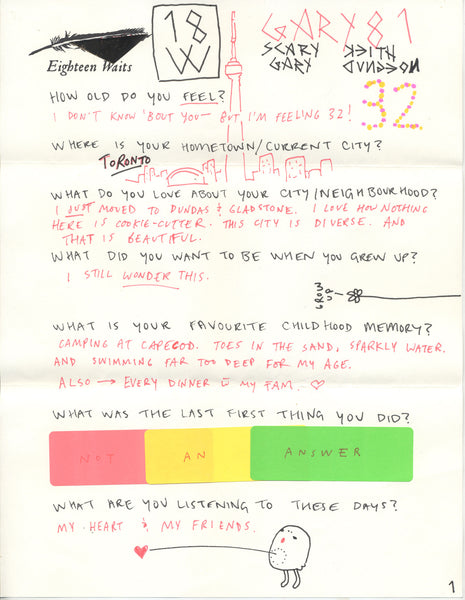 18
W
Eighteen Waits
GARY 81
SCARY
GARY
KEITH
HOW OLD DO YOU FEEL?
I DON'T KNOW 'BOUT YOU - BUT I'M FEELING 32!
32
WHERE IS YOUR HOMETOWN/CURRENT CITY?
TORONTO
WHAT DO YOU LOVE ABOUT YOUR CITY/NEIGHBOURHOOD?
I JUST MOVED TO DUNDAS & GLADSTONE. I LOVE HOW NOTHING
HERE IS COOKIE-CUTTER. THIS CITY IS DIVERSE. AND
THAT IS BEAUTIFUL.
WHAT DID YOU WANT TO BE WHEN YOU GREW UP?
I STILL WONDER THIS.
GROW
UP
WHAT IS YOUR FAVOURITE CHILDHOOD MEMORY?
CAMPING AT CAPECOD. TOES IN THE SAND, SPARKLY WATER.
AND SWIMMING FAR TOO DEEP FOR MY AGE.
ALSO → EVERY DINNER W MY FAM. ♡
WHAT WAS THE LAST FIRST THING YOU DID?
NOT AN ANSWER
WHAT ARE YOU LISTENING TO THESE DAYS?
MY HEART & MY FRIENDS.
1